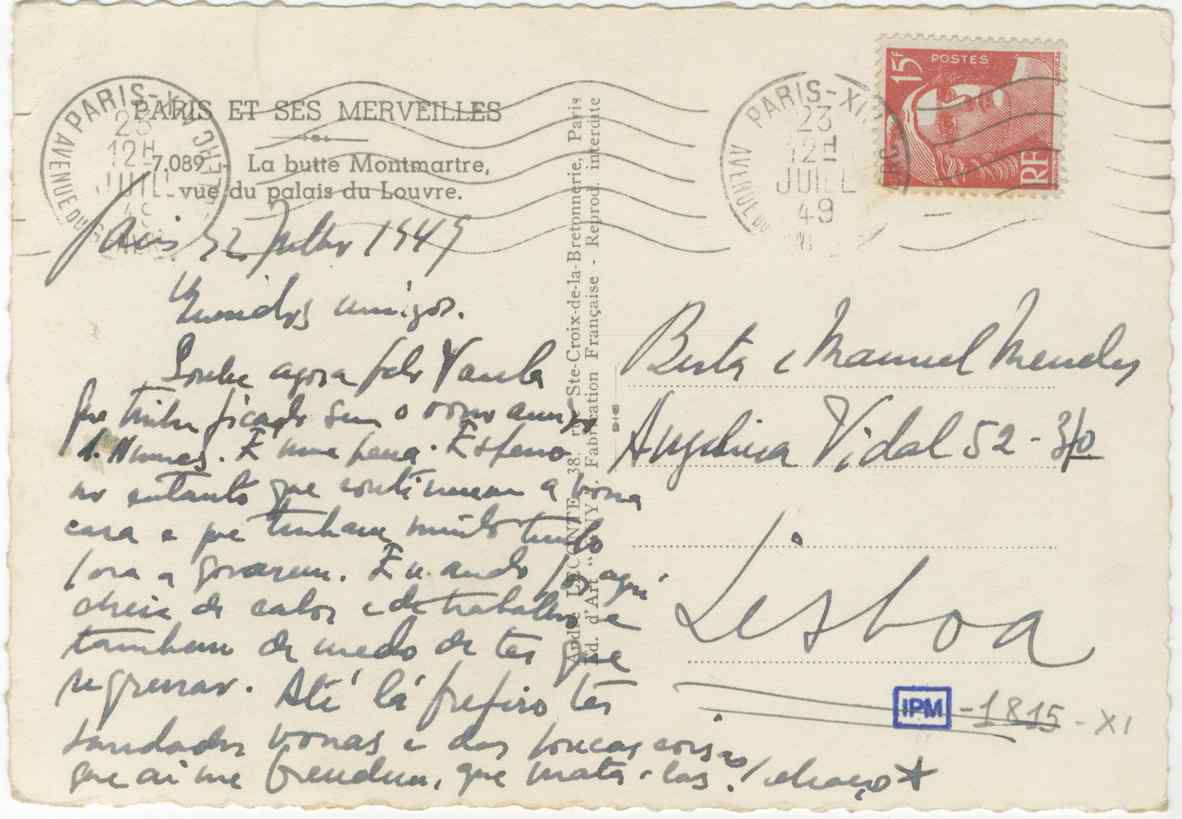 PARIS ET SES MERVEILLES
7.089 - La butte Montmartre,
vue du palais du Louvre.
PARIS-XIV
AVENUE DU G
23
12H
JUILL
49
Paris 22 Julho 1949
Queridos amigos.
Soube agora pelo Varela
que tinham ficado sem o vosso amigo
A. Nunes. É uma pena. Espero
no entanto que continuem a vossa
casa e que tenham muito tempo
para a gozarem. Eu ando por aqui
cheia de calor e de trabalho e
tambem de medo de ter que
regressar. Até lá prefiro ter
saudades vossas e das poucas coisas
que ai me prendem, que mata-las. / abraço
André LECONTE, 38, r. Ste-Croix-de-la-Bretonnerie, Paris
Éd. d'Art "YVON". Fabrication Française - Reprod. interdite
PARIS-XIV
AVENUE DU
23
12H
JUILL
49
15f
POSTES
RF
Berta e Manuel Mendes
Angelina Vidal 52 - 3/o
Lisboa
IPM - 1815 - XI